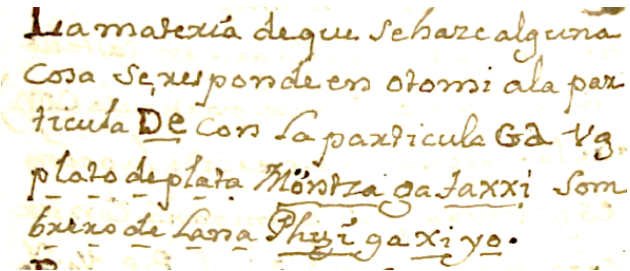 La materia deque sehaze alguna
Cosa se responde en otomi ala par
ticula De con la particula Ga Vg
plato deplata Móntza ga taxxi som
brero de Lana Phuỹí ga xi yo.